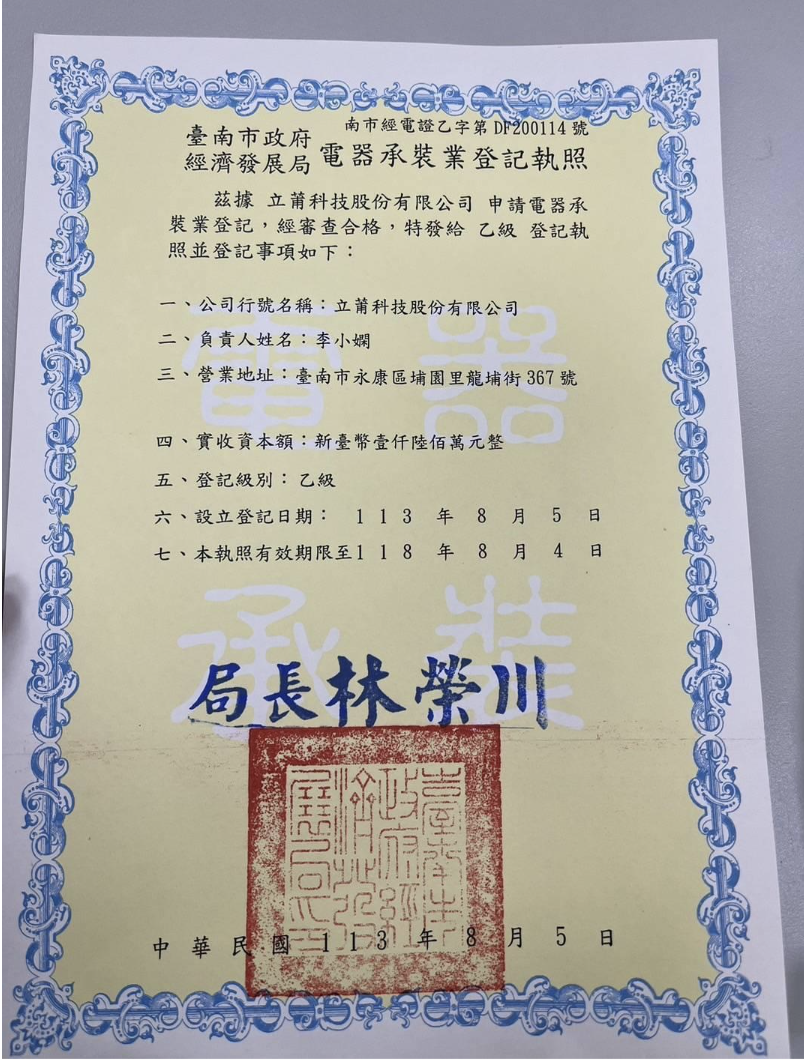 南市經電證乙字第DF200114號
臺南市政府
經濟發展局
電器承裝業登記執照
茲據 立莆科技股份有限公司 申請電器承
裝業登記，經審查合格，特發給 乙級 登記執
照並登記事項如下：
一、公司行號名稱：立莆科技股份有限公司
二、負責人姓名：李小嫻
三、營業地址：臺南市永康區埔園里龍埔街367號
四、實收資本額：新臺幣壹仟陸佰萬元整
五、登記級別：乙級
六、設立登記日期： 113 年 8 月 5 日
七、本執照有效期限至118 年 8 月 4 日
電器
承裝
局長林榮川
臺南市
政府經
濟發
展局印
中華民國 113 年 8 月 5 日